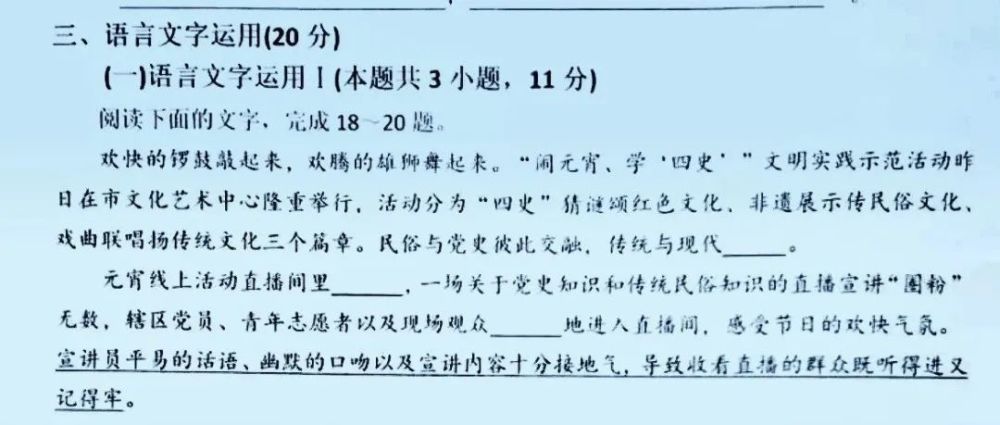 三、语言文字运用(20 分)
(一)语言文字运用 I (本题共 3 小题，11 分)
阅读下面的文字，完成 18～20 题。
欢快的锣鼓敲起来，欢腾的雄狮舞起来。“闹元宵、学‘四史’”文明实践示范活动昨
日在市文化艺术中心隆重举行，活动分为“四史”猜谜颂红色文化、非遗展示传民俗文化、
戏曲联唱扬传统文化三个篇章。民俗与党史彼此交融，传统与现代______。
元宵线上活动直播间里______，一场关于党史知识和传统民俗知识的直播宣讲“圈粉”
无数，辖区党员、青年志愿者以及现场观众______地进入直播间，感受节日的欢快气氛。
宣讲员平易的话语、幽默的口吻以及宣讲内容十分接地气，导致收看直播的群众既听得进又
记得牢。